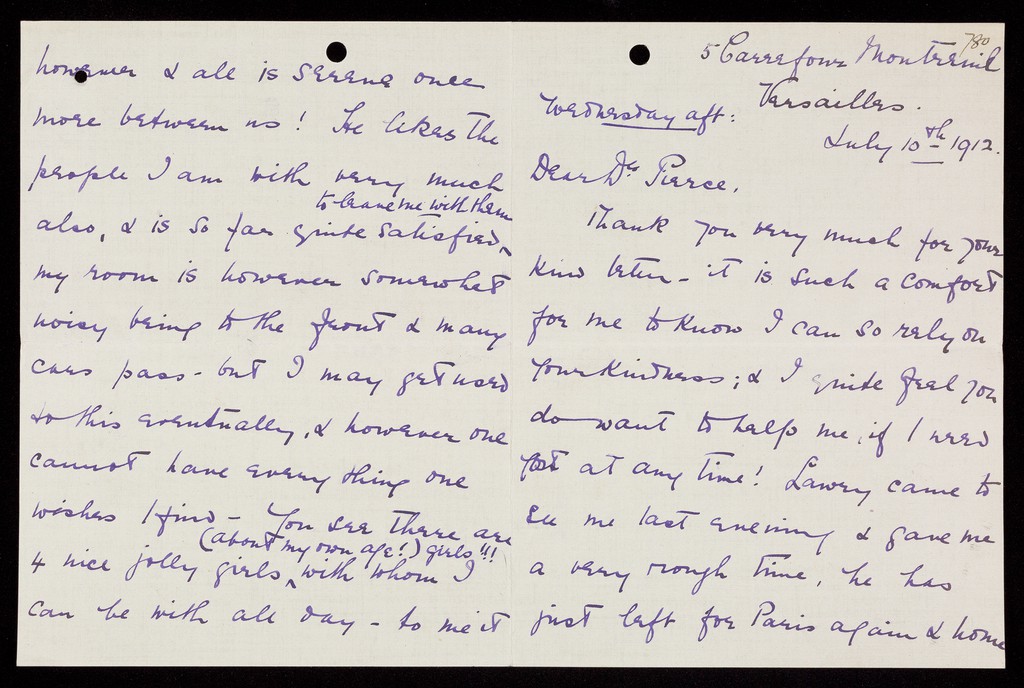 780
5 Carrefour Montreuil
Versailles.
Wednesday aft:
July 10th 1912.
Dear Dr Pierce,
Thank you very much for your
kind letter - it is such a comfort
for me to know I can so rely on
your kindness; & I quite feel you
do want to help me, if I need
at any time! Lawry came to
see me last evening & gave me
a very rough time, he has
just left for Paris again & home
however & all is serene once
more between us! He likes the
people I am with very much
to leave me with them
also, & is so far quite satisfied,
my room is however somewhat
noisy being to the front & many
cars pass - but I may get used
to this eventually, & however one
cannot have every thing one
wishes I find - You see there are
(about my own age!) girls!!!
4 nice jolly girls, with whom I
can be with all day - to me it